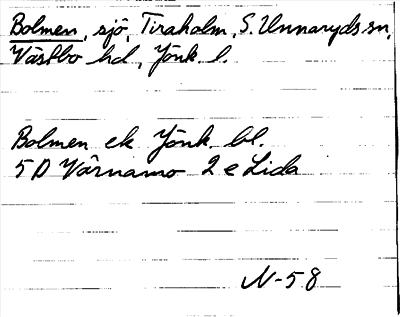 Bolmen, sjö, Tiraholm, S. Unnaryds sn,
Västbo hd, Jönk. l.
Bolmen ek Jönk. bl.
5D Värnamo 2 e Lida
N-58